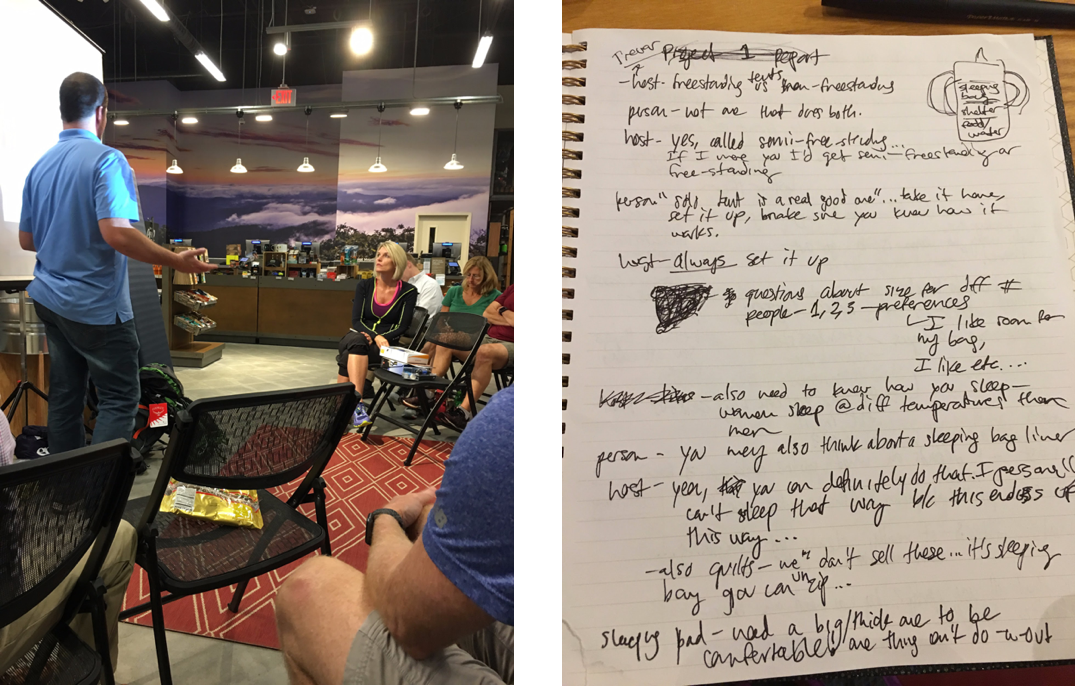 EXIT
Trevor Project 1 report
-host-freestanding tents vs non-freestanding
person-not one that does both.
host-yes, called semi-free-standing...
If I were you I'd get semi-freestanding or
free-standing
sleeping
bag
shelter
food/
water
person "solo tent is a real good one"... take it home,
set it up, make sure you know how it
works.
host-always set it up
questions about size for diff #
people-1,2,3-preferences
I like room for
my bag,
I like etc....
-also need to know how you sleep-
women sleep @diff temperatures than
men
person - you may also think about a sleeping bag liner
host-yea, you can definitely do that. I personally
can't sleep that way b/c this ends up
this way...
-also quilts-we don't sell these...it's sleeping
bag you can unzip...
sleeping pad-need a big/thick one to be
comfortable, one thing can't do w-out